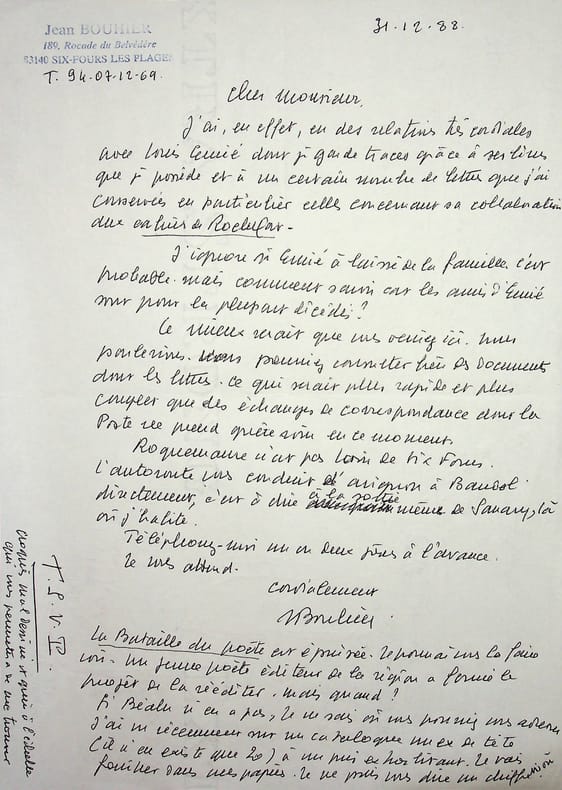 Jean BOUHIER
189, Rocade du Belvédère
83140 SIX-FOURS LES PLAGES
T. 94.07.12.69.
31.12.88.
Cher Monsieur,
J'ai, en effet, eu des relations très cordiales
avec Louis Emié dont je garde traces grâce à ses livres
que je possède et à un certain nombre de lettres que j'ai
conservées en particulier celles concernant sa collaboration
aux cahiers de Rochefort -
J'ignore si Emié à laissé de la famille. c'est
probable. mais comment savoir car les amis d'Emié
sont pour la plupart décédés ?
Le mieux serait que vous veniez ici. nous
parlerions. vous pourriez consulter bien des documents
dont les lettres. ce qui serait plus rapide et plus
complet que des échanges de correspondance dont la
Poste ne prend guère soin en ce moment.
Roquemaure n'est pas loin de Six Fours.
L'autoroute vous conduit d'avignon à Bandol
directement, c'est à dire à la sortie même de Sanary, là
où j'habite.
Téléphonez-moi un ou deux jours à l'avance.
Je vous attend.
cordialement
JBouhier
La Bataille du poète est épuisée. Je pourrai vous la faire
voir. un jeune poète éditeur de la région a formé le
projet de la rééditer. mais quand ?
Si Béalu n'en a pas, je ne sais où vous pourriez vous adresser
J'ai vu récemment sur un catalogue un ex de tête
(il n'en existe que 20) à un prix exhorbitant. Je vais
fouiller dans mes papiers. Je ne puis vous dire un chiffre
T. S. V. P.
croquis mal dessiné et pas à l'échelle
qui vous permettra de me trouver